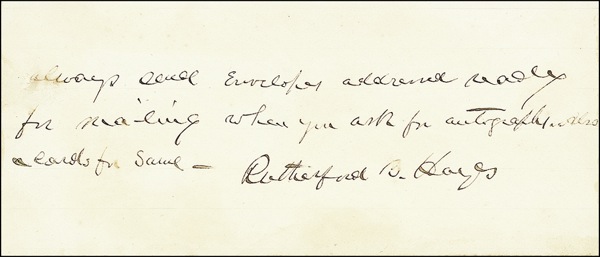 always send Envelopes addressed ready
for mailing when you ask for autographs. also
cards for same — Rutherford B. Hayes